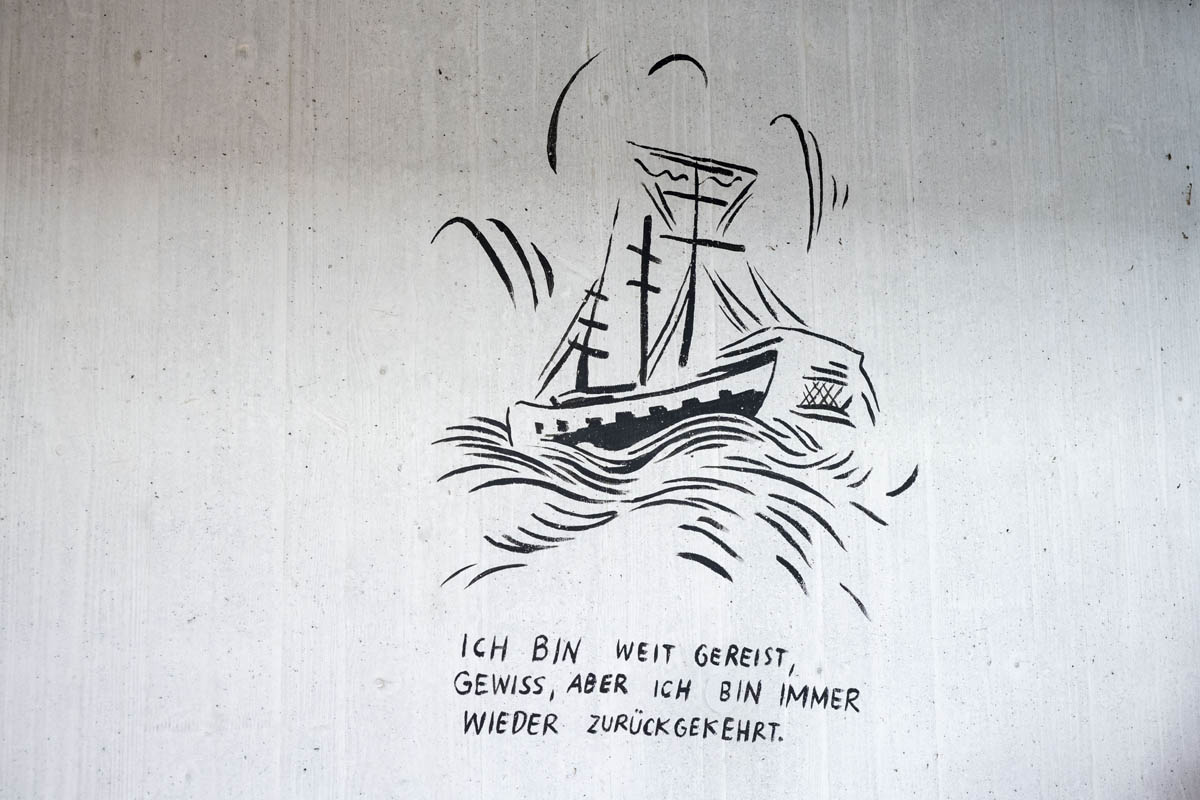 ICH BIN WEIT GEREIST,
GEWISS, ABER ICH BIN IMMER
WIEDER ZURÜCKGEKEHRT.